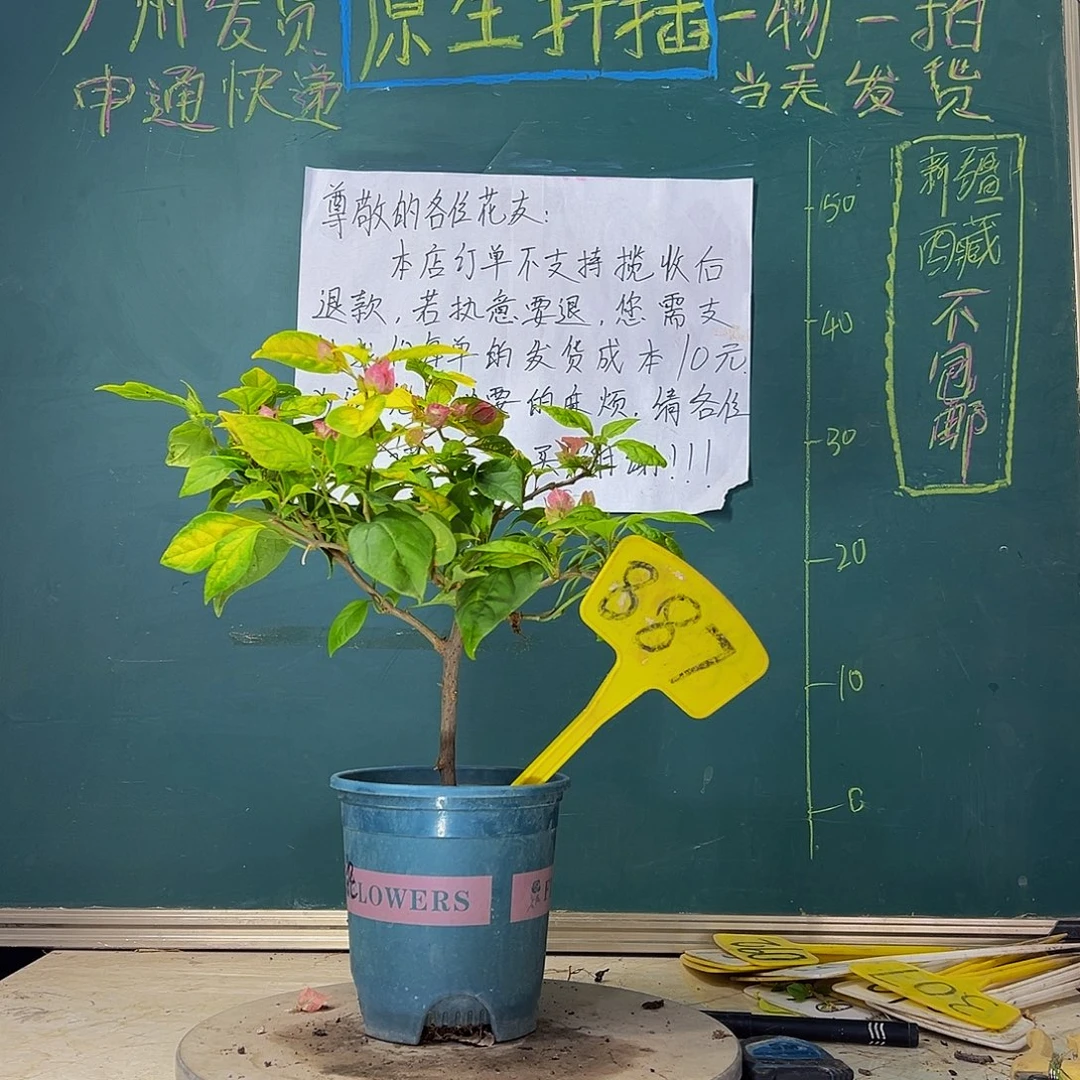 广州发货 原生扦插 一物一拍
申通快递
当天发货
尊敬的各位花友:
本店订单不支持揽收后
退款,若执意要退,您需支
每单的发货成本10元
要的麻烦.请各位
买 谢!!!
50
40
30
20
10
0
新疆
西藏
不包邮
887
FLOWERS
F